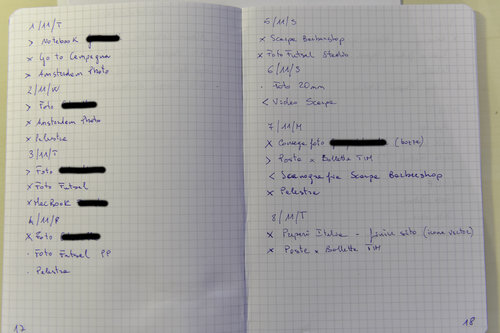 1/11/T
> Notebook
x Go to Campagna
> Amsterdam Photo
2/11/W
> Foto
x Amsterdam Photo
x Palestra
3/11/T
> Foto
x Foto Futsal
x MacBook
4/11/F
x Foto
· Foto Futsal PP
· Palestra
17
5/11/S
x Scarpe Barbershop
x Foto Futsal Stadio
6/11/S
· Foto 20mm
< Video Scarpe
7/11/M
x Consegna foto (borse)
> Posta x Bolletta TIM
< Scenografia Scarpe Barbershop
x Palestra
8/11/T
x Papari Italia - finire sito (icone vector)
x Posta x Bolletta TIM
18